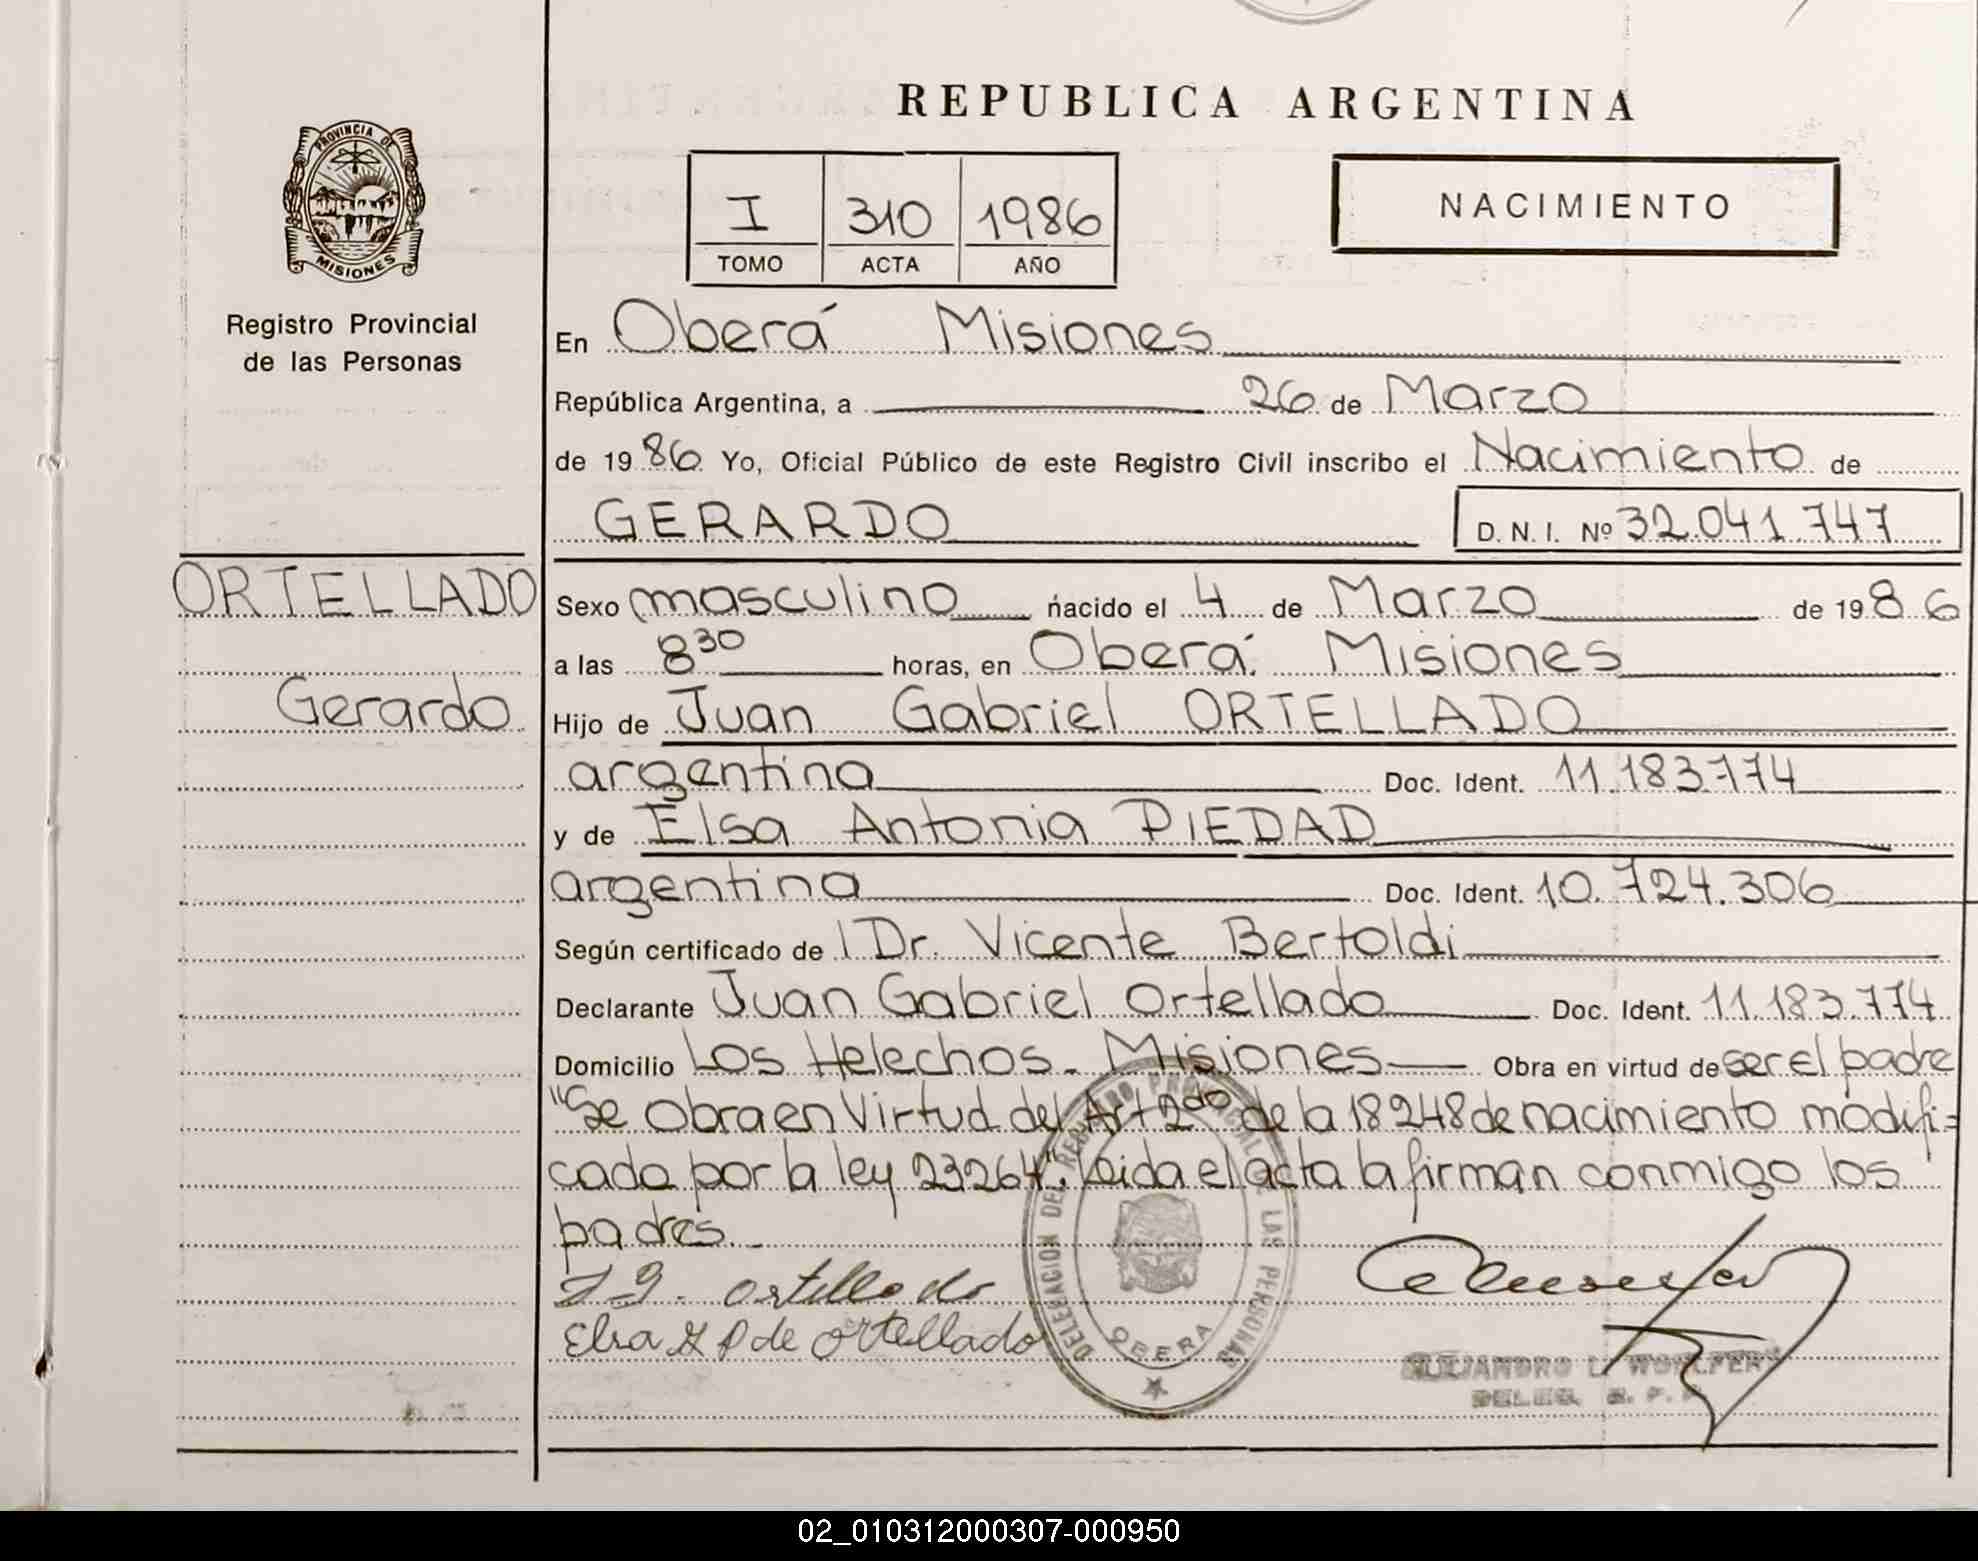 REPUBLICA ARGENTINA
PROVINCIA DE
MISIONES
Registro Provincial
de las Personas
I 310 1986
TOMO ACTA AÑO
NACIMIENTO
En Oberá Misiones
República Argentina, a 26 de Marzo
de 1986 Yo, Oficial Público de este Registro Civil inscribo el Nacimiento de
GERARDO D. N. I. Nº 32.041.747
ORTELLADO
Gerardo
Sexo masculino nacido el 4 de Marzo de 1986
a las 8 30 horas, en Oberá. Misiones
Hijo de Juan Gabriel ORTELLADO
argentina Doc. Ident. 11.183.774
y de Elsa Antonia PIEDAD
argentina Doc. Ident. 10.724.306
Según certificado de l Dr. Vicente Bertoldi
Declarante Juan Gabriel Ortellado Doc. Ident. 11.183.774
Domicilio Los Helechos. Misiones Obra en virtud de ser el padre
"Se Obra en Virtud del Art 2do de la 18248 de nacimiento modifi=
cado por la ley 23264". Leida el acta la firman conmigo los
padres.
J G. Ortellado
Elsa A P de Ortellado
DELEGACION DEL REGISTRO PROVINCIAL DE LAS PERSONAS
OBERA
ALEJANDRO L.
DELEG. R. P.
02_010312000307-000950